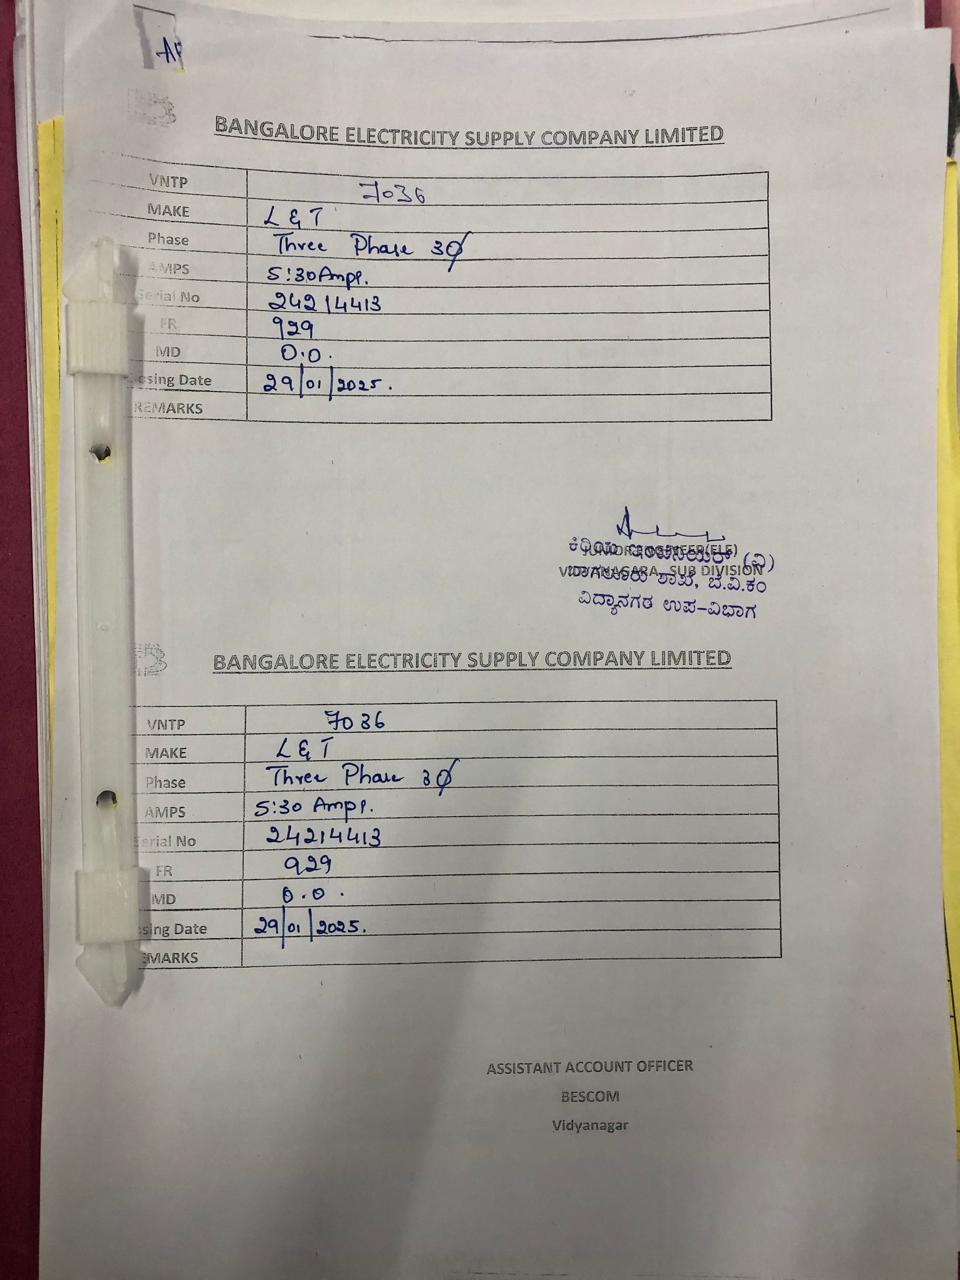 BANGALORE ELECTRICITY SUPPLY COMPANY LIMITED
VNTP 7036
MAKE L & T
Phase Three Phase 3Ø
AMPS 5:30 Amps.
Serial No 24214413
FR 929
MD 0.0.
osing Date 29/01/2025.
REMARKS
JUNIOR ENGINEER(ELE)
ಕಿರಿಯ ಇಂಜಿನಿಯರ್ (ವಿ)
VIDYANAGARA SUB DIVISION
ಬಾಗಲೂರು ಶಾಖೆ, ಬೆ.ವಿ.ಕಂ
ವಿದ್ಯಾನಗರ ಉಪ-ವಿಭಾಗ
BANGALORE ELECTRICITY SUPPLY COMPANY LIMITED
VNTP 7036
MAKE L & T
Phase Three Phase 3Ø
AMPS 5:30 Amps.
Serial No 24214413
FR 929
MD 0.0.
sing Date 29/01/2025.
EMARKS
ASSISTANT ACCOUNT OFFICER
BESCOM
Vidyanagar